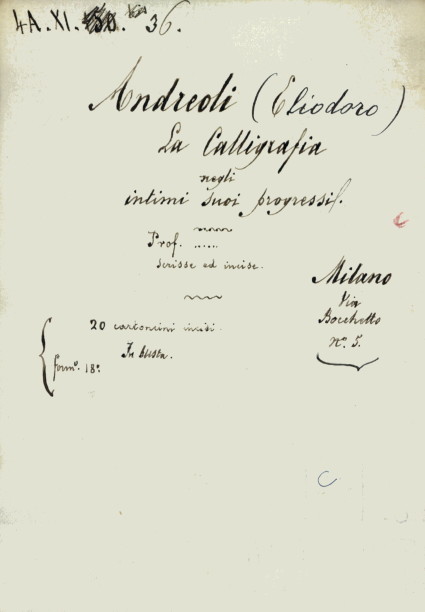 4A.XI. 36.
Andreoli (Eliodoro)
La Calligrafia
negli
intimi suoi progressi.
Prof. ......
scrisse ed incise.
Milano
Via
Bocchetto
nº. 5.
20 cartoncini incisi.
In busta.
formº. 18º.
C